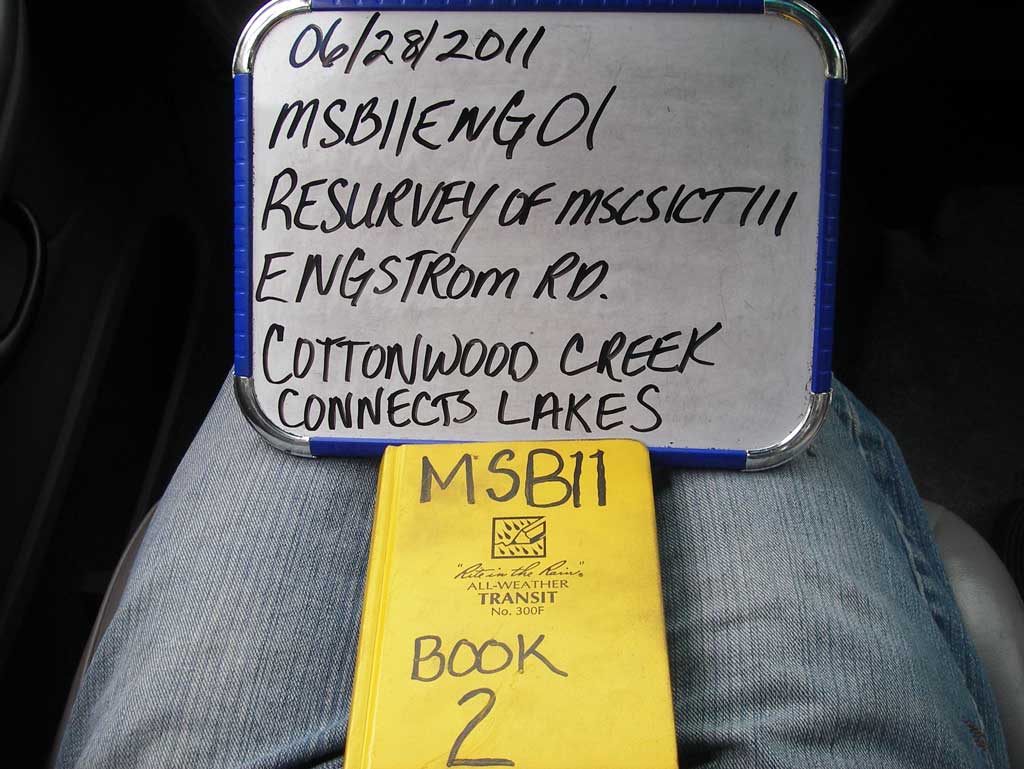 06/28/2011
MSB11ENG01
RESURVEY OF MSCSICT111
ENGSTROM RD.
COTTONWOOD CREEK
CONNECTS LAKES
MSB11
"Rite in the Rain"®
ALL-WEATHER
TRANSIT
No. 300F
BOOK
2